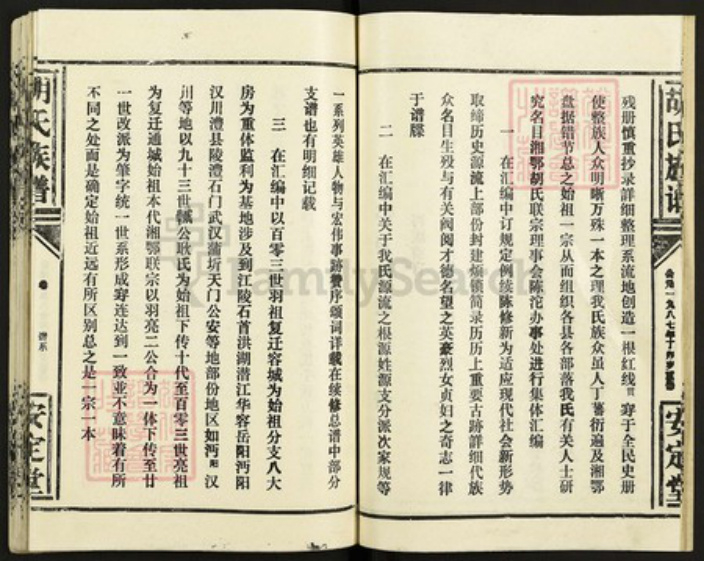 胡氏族谱
公元一九八七年丁卯岁
安定堂
残册慎重抄录詳细整理系流地创造一根红线贯穿于全民史册
使整族人众明晰万殊一本之理我氏族众虽人丁蕃衍遍及湘鄂
盘据错节总之始祖一宗从而组织各县各部落我氏有关人士研
究名目湘鄂胡氏联宗理事会陈沱办事处进行集体汇编
一 在汇编中订规定例续陈修新为适应现代社会新形势
取缔历史源流上部份封建烦锁简录历历上重要古跡詳细代族
众名目生殁与有关阀阅才德名望之英豪烈女贞妇之奇志一律
于谱牒
二 在汇编中关于我氏源流之根源姓源支分派次家规等
一系列英雄人物与宏伟事跡赞序颂词详载在续修总谱中部分
支谱也有明细记载
三 在汇编中以百零三世羽祖复迁容城为始祖分支八大
房为重体监利为基地涉及到江陵石首洪湖潜江华容岳阳沔阳
汉川澧县陵澧石门武汉蒲圻天门公安等地部份地区如沔阳汉
川等地以九十三世公耿氏为始祖下传十代至百零三世亮祖
为复迁通城始祖本代湘鄂联宗以羽亮二公合为一体下传至廿
一世改派为肇字统一世系形成穿连达到一致並不意味着有所
不同之处而是确定始祖近远有所区别总之是一宗一本
胡氏族谱
谱系
安定堂
FamilySearch